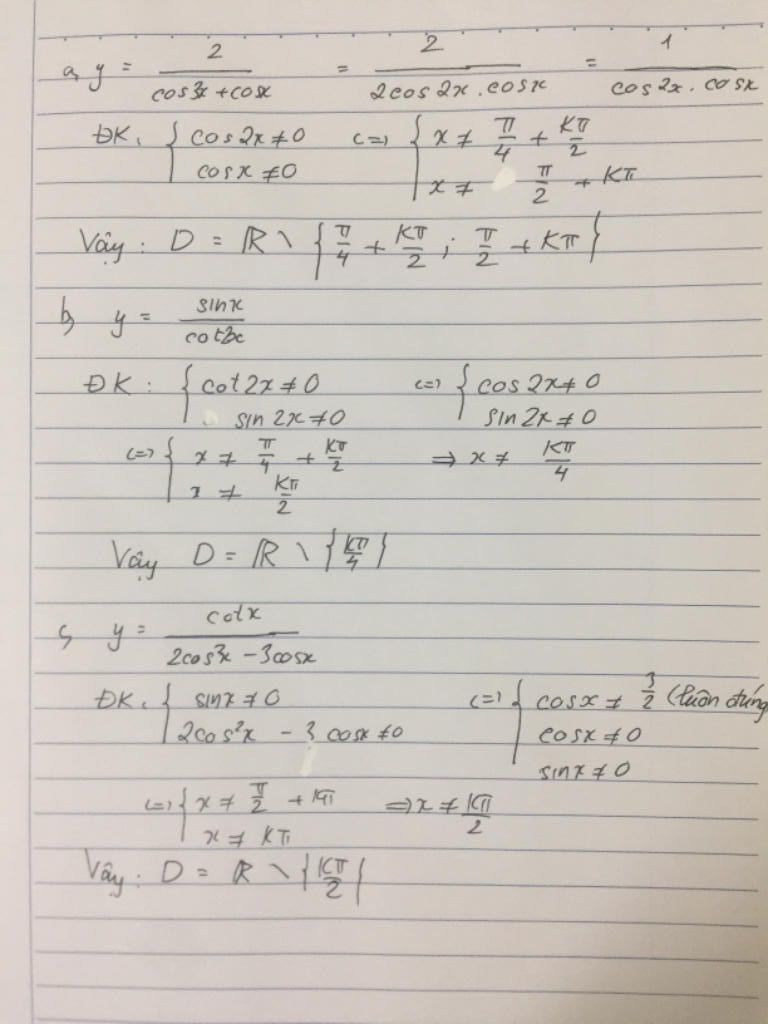 a, y = 2/(cos3x + cosx) = 2/(2cos2x . cosx) = 1/(cos2x . cosx)
ĐK: { cos2x ≠ 0 ; cosx ≠ 0 <=> { x ≠ π/4 + Kπ/2 ; x ≠ π/2 + Kπ
Vậy: D = R \ { π/4 + Kπ/2 ; π/2 + Kπ }
b, y = sinx/cot2x
ĐK: { cot2x ≠ 0 ; sin2x ≠ 0 <=> { cos2x ≠ 0 ; sin2x ≠ 0
<=> { x ≠ π/4 + Kπ/2 ; x ≠ Kπ/2 => x ≠ Kπ/4
Vậy D = R \ { Kπ/4 }
c, y = cotx/(2cos²x - 3cosx)
ĐK: { sinx ≠ 0 ; 2cos²x - 3cosx ≠ 0 <=> { cosx ≠ 3/2 (luôn đúng ; cosx ≠ 0 ; sinx ≠ 0
<=> { x ≠ π/2 + Kπ ; x ≠ Kπ => x ≠ Kπ/2
Vậy: D = R \ { Kπ/2 }